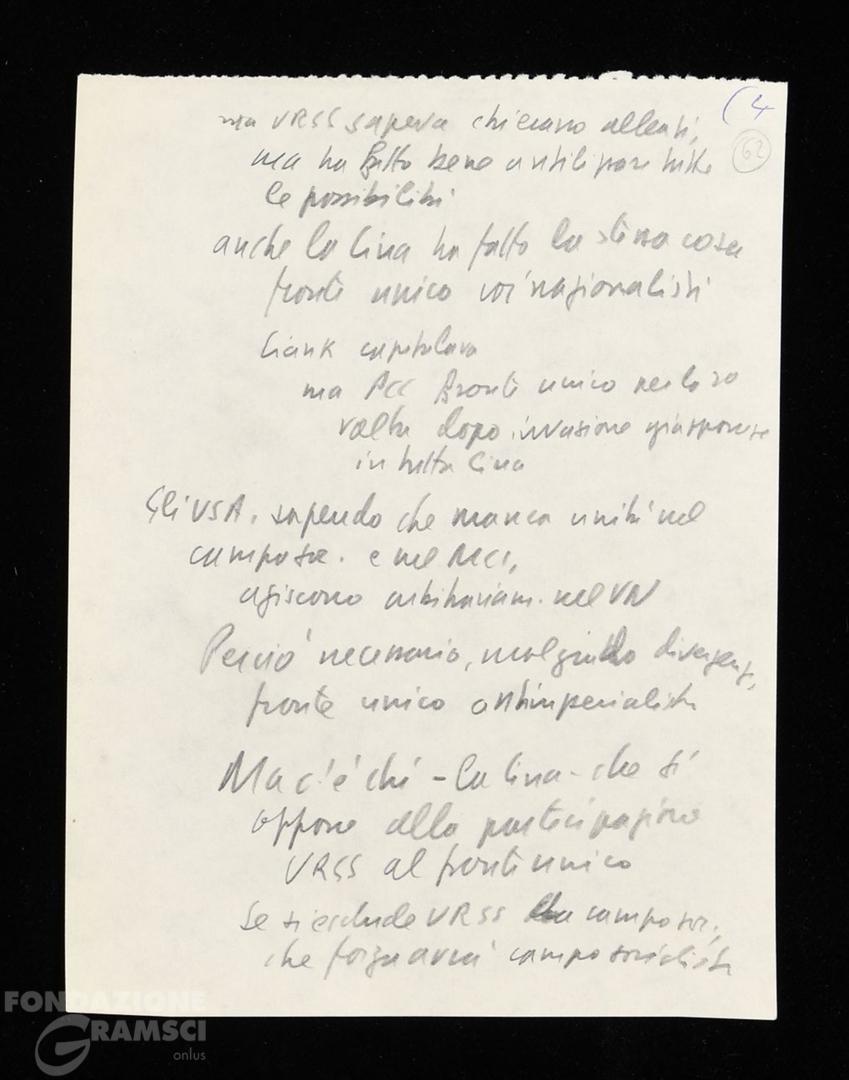 (4
62
ma URSS sapeva chi erano alleati,
ma ha fatto bene a utilizzare tutte
le possibilità
anche la Cina ha fatto la stessa cosa
fronte unico coi nazionalisti
Ciank capitolava
ma PCC fronte unico
volta dopo invasione giapponese
in tutta Cina
Gli USA, sapendo che manca unità nel
campo soc. e nel MCI,
agiscono arbitrariam. nel VN
Perciò necessario, malgrado divergenz,
fronte unico antimperialista
Ma c'è chi - la Cina - che si
oppone alla partecipazione
URSS al fronte unico
Se si esclude URSS da campo soc.,
che forza avrà campo socialista
FONDAZIONE
GRAMSCI
onlus